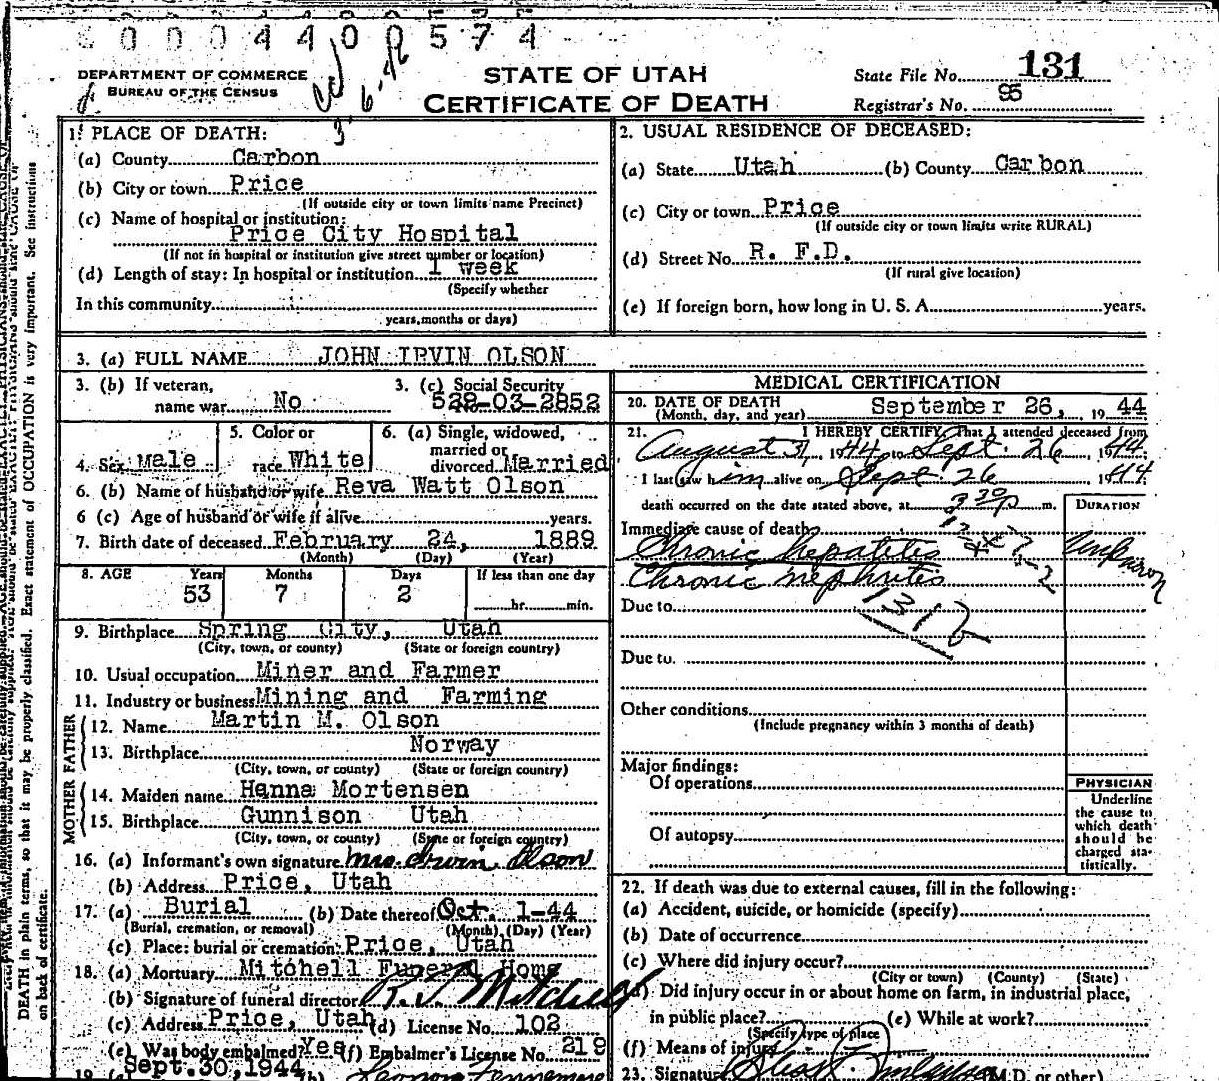 0 0 0 4 4 0 0 5 7 4
DEPARTMENT OF COMMERCE
BUREAU OF THE CENSUS
STATE OF UTAH
CERTIFICATE OF DEATH
State File No. 131
Registrar's No. 95
1. PLACE OF DEATH:
(a) County Carbon
(b) City or town Price
(If outside city or town limits name Precinct)
(c) Name of hospital or institution:
Price City Hospital
(If not in hospital or institution give street number or location)
(d) Length of stay: In hospital or institution 1 week
(Specify whether
In this community
years, months or days)
2. USUAL RESIDENCE OF DECEASED:
(a) State Utah (b) County Carbon
(c) City or town Price
(If outside city or town limits write RURAL)
(d) Street No. R. F.D.
(If rural give location)
(e) If foreign born, how long in U. S. A. years.
3. (a) FULL NAME JOHN IRVIN OLSON
3. (b) If veteran,
name war No
3. (c) Social Security
528-03-2852
4. Sex Male
5. Color or
race White
6. (a) Single, widowed,
married or
divorced Married
6. (b) Name of husband or wife Reva Watt Olson
6 (c) Age of husband or wife if alive years.
7. Birth date of deceased February 24, 1889
(Month) (Day) (Year)
8. AGE Years Months Days If less than one day
53 7 2 hr. min.
9. Birthplace Spring City, Utah
(City, town, or county) (State or foreign country)
10. Usual occupation Miner and Farmer
11. Industry or business Mining and Farming
FATHER
12. Name Martin M. Olson
13. Birthplace Norway
(City, town, or county) (State or foreign country)
MOTHER
14. Maiden name Hanna Mortensen
15. Birthplace Gunnison Utah
(City, town, or county) (State or foreign country)
16. (a) Informant's own signature Mrs. Irvin Olson
(b) Address Price, Utah
17. (a) Burial (b) Date thereof Oct. 1-44
(Burial, cremation, or removal) (Month) (Day) (Year)
(c) Place: burial or cremation Price, Utah
18. (a) Mortuary Mitchell Funeral Home
(b) Signature of funeral director R. J. Mitchell
(c) Address Price, Utah (d) License No. 102
(e) Was body embalmed? Yes (f) Embalmer's License No. 219
Sept. 30, 1944
MEDICAL CERTIFICATION
20. DATE OF DEATH
(Month, day, and year) September 26, 1944
21. I HEREBY CERTIFY, That I attended deceased from
August 31, 1944, to Sept. 26 1944.
I last saw him alive on Sept. 26 1944.
death occurred on the date stated above, at 3 30 p m.
DURATION
Immediate cause of death
Chronic hepatites
Chronic nephrites
Due to
Due to
Other conditions
(Include pregnancy within 3 months of death)
Major findings:
Of operations
Of autopsy
PHYSICIAN
Underline
the cause to
which death
should be
charged sta-
tistically.
22. If death was due to external causes, fill in the following:
(a) Accident, suicide, or homicide (specify)
(b) Date of occurrence
(c) Where did injury occur?
(City or town) (County) (State)
(d) Did injury occur in or about home on farm, in industrial place,
in public place? (e) While at work?
(Specify type of place
(f) Means of injury
23. Signature (M.D. or other)
DEATH in plain terms, so that it may be properly classified. Exact statement of OCCUPATION is very important. See instructions
on back of certificate.